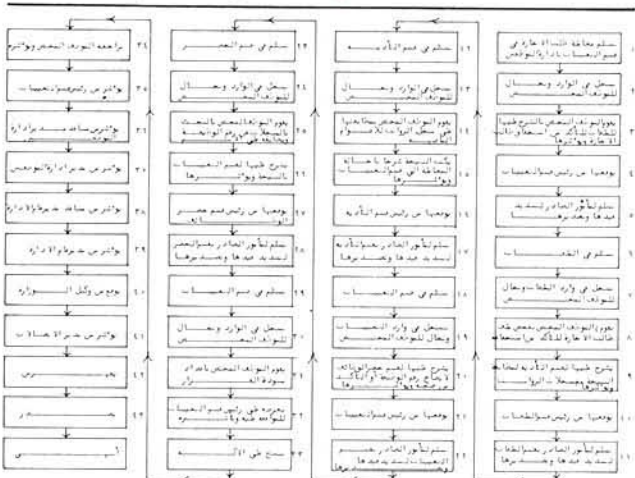 ١
تسلم معاملة طلب الاجازة في
قسم التعيينات بادارة الموظفين
٢
تسجل في الوارد وتحال
للموظف المختص
٣
يقوم الموظف المختص بالشرح عليها
للملفات للتأكد من
الاجازة ويؤشرها
٤
يوقعها من رئيس قسم التعيينات
٥
تسلم لمأمور الصادر لتسديد
قيدها وتصديرها
٦
تسلم في الملفات
٧
تسجل في وارد الملفات وتحال
للموظف المختص
٨
يقوم الموظف المختص بفحص ملف
طالب الاجازة للتأكد من
٩
يشرح عليها لقسم التأدية لمطابقة
النتيجة ومسحلات الرواتب
ويؤشرها
١٠
يوقعها من رئيس قسم الملفات
١١
تسلم لمأمور الصادر بقسم الملفات
لتسديد قيدها وتصديرها
١٢
تسلم في قسم التأدية
١٣
تسجل في الوارد وتحال
للموظف المختص
١٤
يقوم الموظف المختص بمطابقتها
على سجل الرواتب للأعوام
الماضية
١٥
يثبت النتيجة شرحا باحالة
المعاملة الى قسم التعيينات
ويؤشرها
١٦
يوقعها من رئيس قسم التأدية
١٧
تسلم لمأمور الصادر بقسم التأدية
لتسديد قيدها وتصديرها
١٨
تسلم في قسم التعيينات
١٩
تسجل في وارد التعيينات
وتحال للموظف المختص
٢٠
يشرح عليها لقسم حصر الوظائف
لايضاح رقم الوظيفة أو التأكد
من صحته ويؤشرها
٢١
يوقعها من رئيس قسم التعيينات
٢٢
تسلم لمأمور الصادر بقسم
التعيينات لتسديد قيدها
وتصديرها
٢٣
تسلم في قسم الحصر
٢٤
تسجل في الوارد وتحال
للموظف المختص
٢٥
يقوم الموظف المختص بالبحث
بالسجلات عن رقم الوظيفة
ومطابقته على رقم
٢٦
يشرح عليها لقسم التعيينات
بالنتيجة ويؤشرها
٢٧
يوقعها من رئيس قسم حصر
الوظائف
٢٨
تسلم لمأمور الصادر بقسم الحصر
لتسديد قيدها وتصديرها
٢٩
تسلم في قسم التعيينات
٣٠
تسجل في الوارد وتحال
للموظف المختص
٣١
يقوم الموظف المختص باعداد
مسودة القرار
٣٢
يعرضه على رئيس قسم التعيينات
للموافقة عليه وتأشيره
٣٣
نسخ على الآلة
٣٤
مراجعة الموظف المختص ويؤشره
٣٥
يؤشر من رئيس قسم التعيينات
٣٦
يؤشر من مساعد مدير ادارة
الموظفين
٣٧
يؤشر من مدير ادارة الموظفين
٣٨
يؤشر من مساعد مدير عام الادارة
٣٩
يؤشر من مدير عام الادارة
٤٠
يوقع من وكيل الوزارة
٤١
يؤشر من مدير الاتصالات
٤٢
٤٣